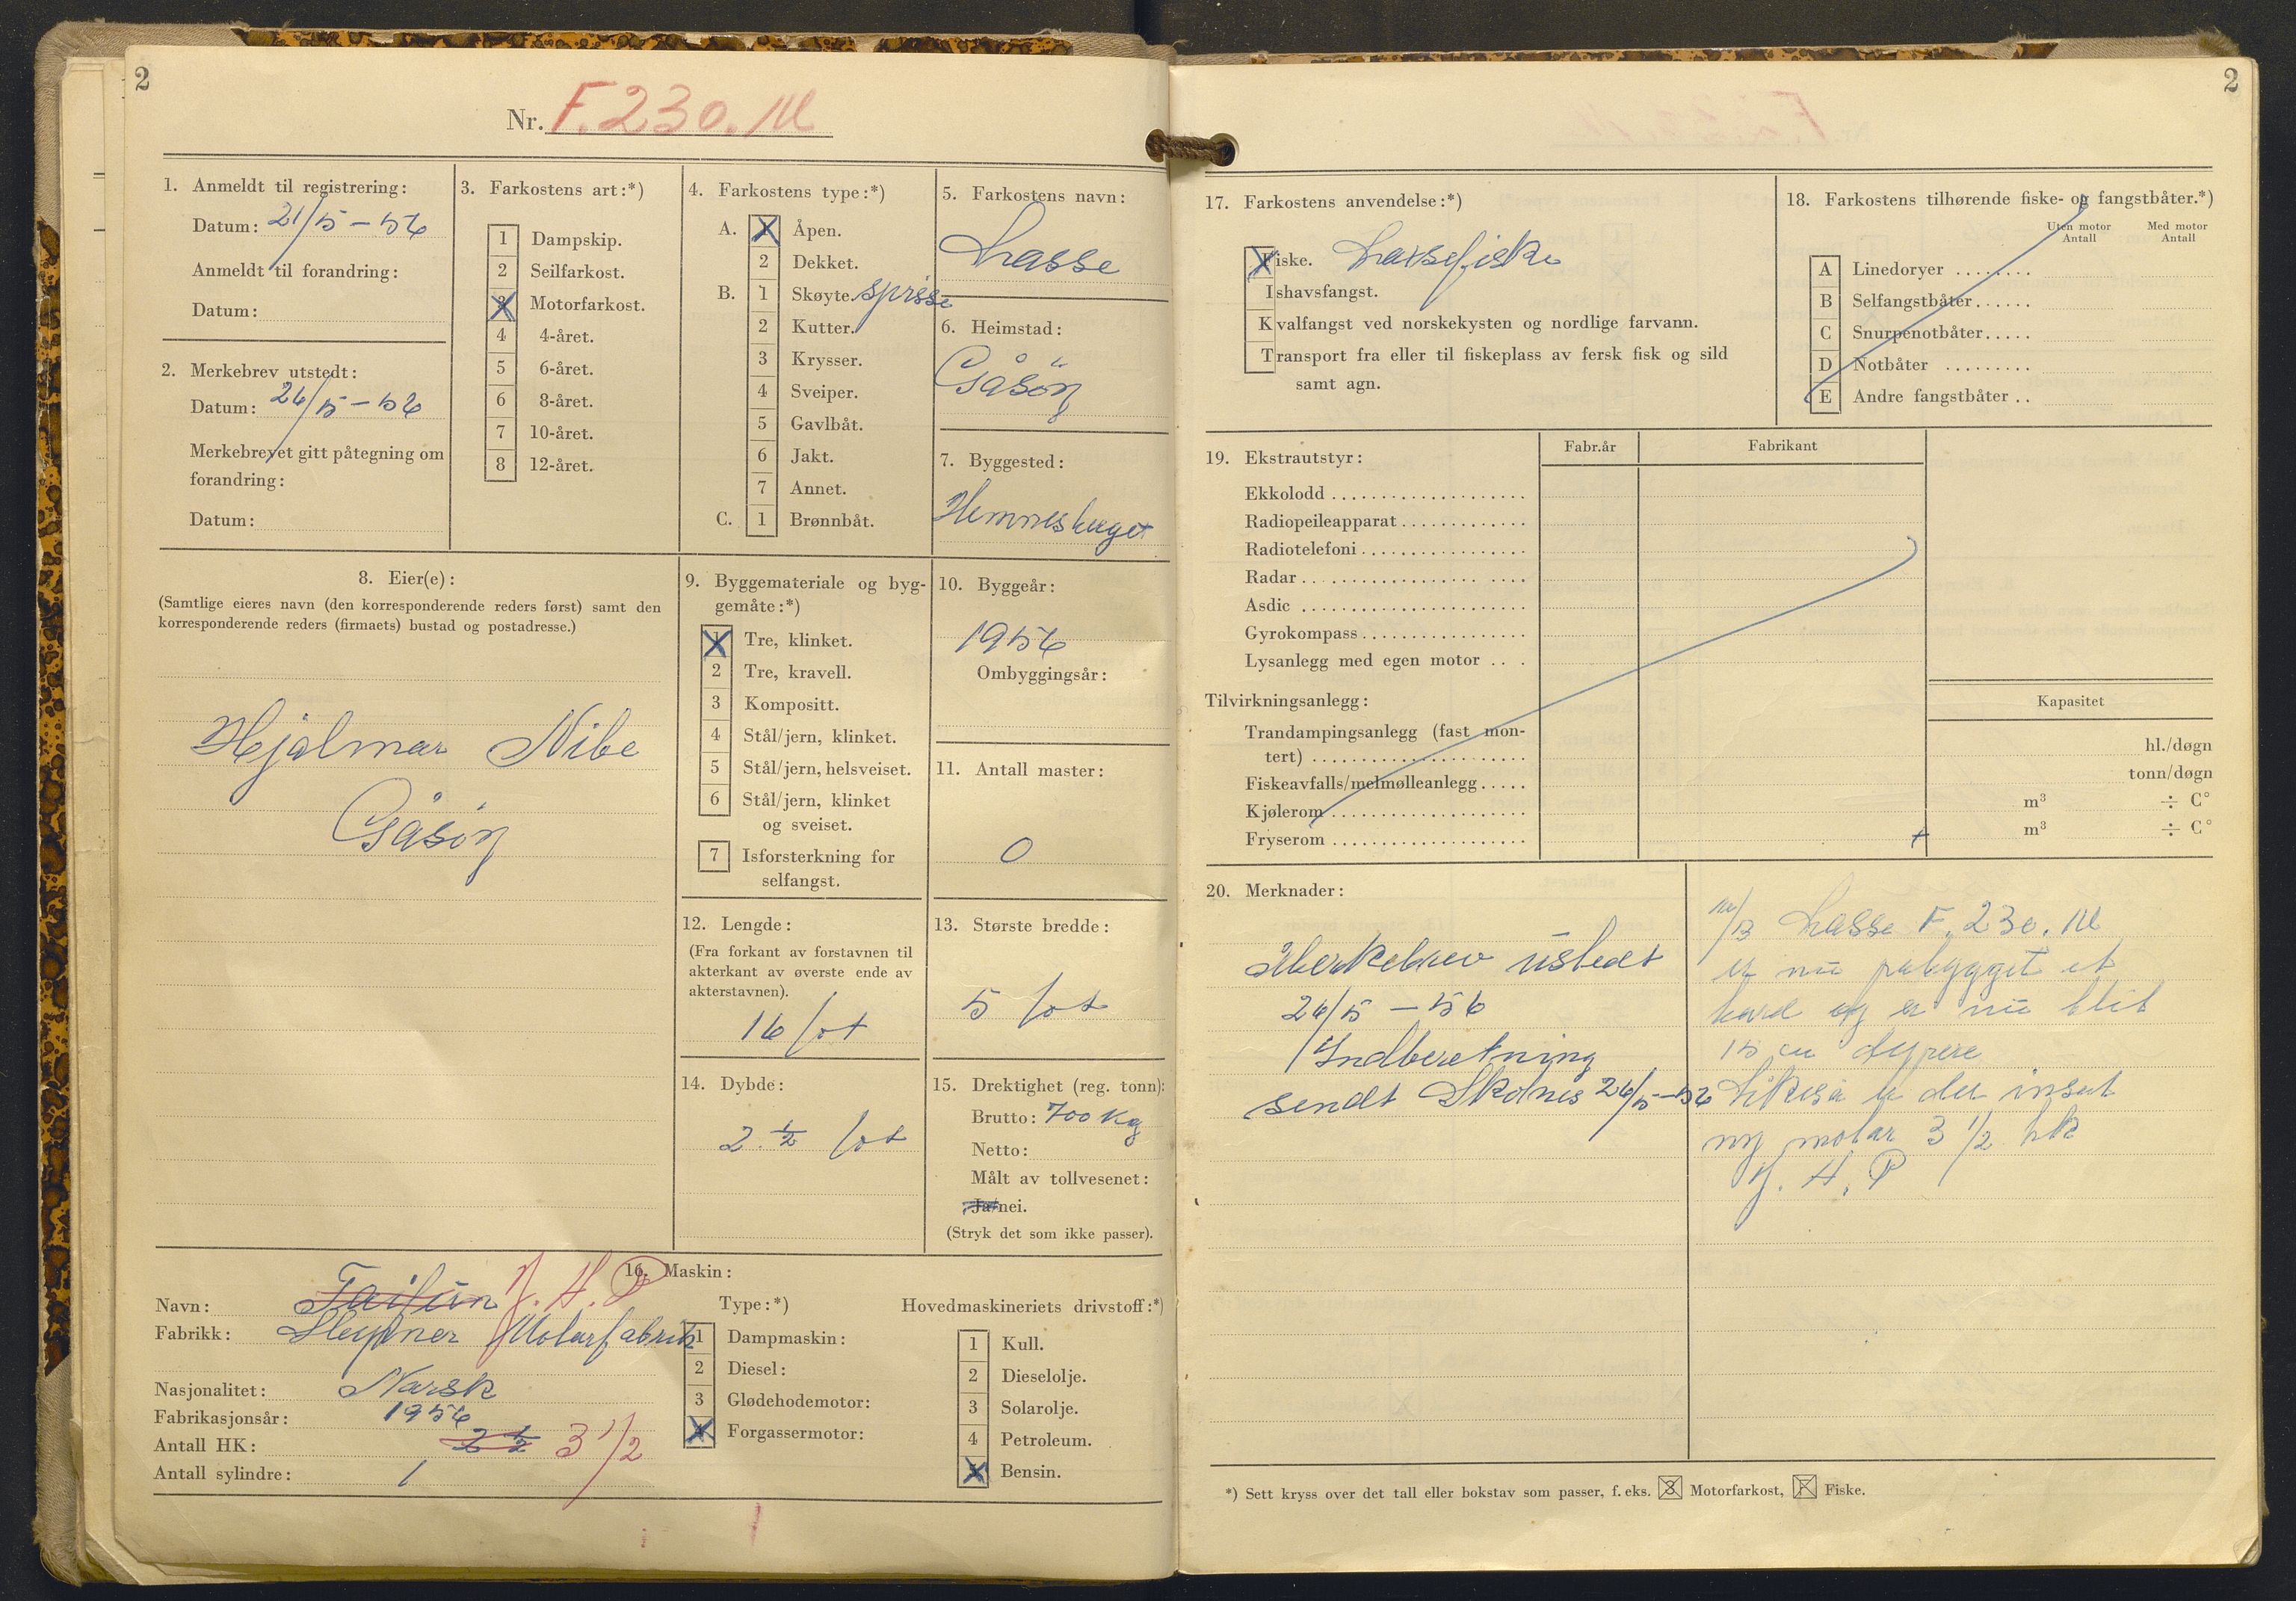 2
Nr. F.230.M
1. Anmeldt til registrering:
Datum: 21/5-56
Anmeldt til forandring:
Datum:
2. Merkebrev utstedt:
Datum: 26/5-56
Merkebrevet gitt påtegning om
forandring:
Datum:
3. Farkostens art:*)
1 Dampskip.
2 Seilfarkost.
3 Motorfarkost.
4 4-året.
5 6-året.
6 8-året.
7 10-året.
8 12-året.
4. Farkostens type:*)
A. 1 Åpen.
2 Dekket.
B. 1 Skøyte.
2 Kutter.
3 Krysser.
4 Sveiper.
5 Gavlbåt.
6 Jakt.
7 Annet.
C. 1 Brønnbåt.
5. Farkostens navn:
Lasse
6. Heimstad:
Gåsöy
7. Byggested:
Hemnesberget
8. Eier(e):
(Samtlige eieres navn (den korresponderende reders først) samt den
korresponderende reders (firmaets) bustad og postadresse.)
Hjalmar Nibe
Gåsöy
9. Byggemateriale og byg-
gemåte:*)
1 Tre, klinket.
2 Tre, kravell.
3 Kompositt.
4 Stål/jern, klinket.
5 Stål/jern, helsveiset.
6 Stål/jern, klinket
og sveiset.
7 Isforsterkning for
selfangst.
10. Byggeår:
1956
Ombyggingsår:
11. Antall master:
0
12. Lengde:
(Fra forkant av forstavnen til
akterkant av øverste ende av
akterstavnen).
16 fot
13. Største bredde:
5 fot
14. Dybde:
2 1/2 fot
15. Drektighet (reg. tonn):
Brutto: 700 Kg
Netto:
Målt av tollvesenet:
Ja/nei.
(Stryk det som ikke passer).
16. Maskin:
Navn: Taifun J. A. P
Fabrikk: Motorfabrik
Nasjonalitet: Norsk
Fabrikasjonsår: 1956
Antall HK: 2 1/2 3 1/2
Antall sylindre: 1
Type:*)
1 Dampmaskin:
2 Diesel:
3 Glødehodemotor:
4 Forgassermotor:
Hovedmaskineriets drivstoff:*)
1 Kull.
2 Dieselolje.
3 Solarolje.
4 Petroleum.
5 Bensin.
2
17. Farkostens anvendelse:*)
Fiske. Laksefiske
Ishavsfangst.
Kvalfangst ved norskekysten og nordlige farvann.
Transport fra eller til fiskeplass av fersk fisk og sild
samt agn.
18. Farkostens tilhørende fiske- og fangstbåter.*)
Uten motor Med motor
Antall Antall
A Linedoryer ........
B Selfangstbåter......
C Snurpenotbåter.....
D Notbåter .........
E Andre fangstbåter ..
19. Ekstrautstyr:
Fabr.år Fabrikant
Ekkolodd ....................
Radiopeileapparat.............
Radiotelefoni.................
Radar........................
Asdic .......................
Gyrokompass................
Lysanlegg med egen motor ...
Tilvirkningsanlegg:
Kapasitet
Trandampingsanlegg (fast mon-
tert) ...................... hl./døgn
Fiskeavfalls/melmølleanlegg..... tonn/døgn
Kjølerom .................... m³ ÷ C°
Fryserom .................... m³ ÷ C°
20. Merknader:
Merkebrev üstedt
26/5 - 56
Indberetning
sendt 26/5-56
Lasse F.230.M
er nü påbygget et
bord og er nü blit
15 cm dypere
Likeså er der insat
ny motor 3 1/2 hk
J. A. P
*) Sett kryss over det tall eller bokstav som passer, f. eks. 3 Motorfarkost, F Fiske.